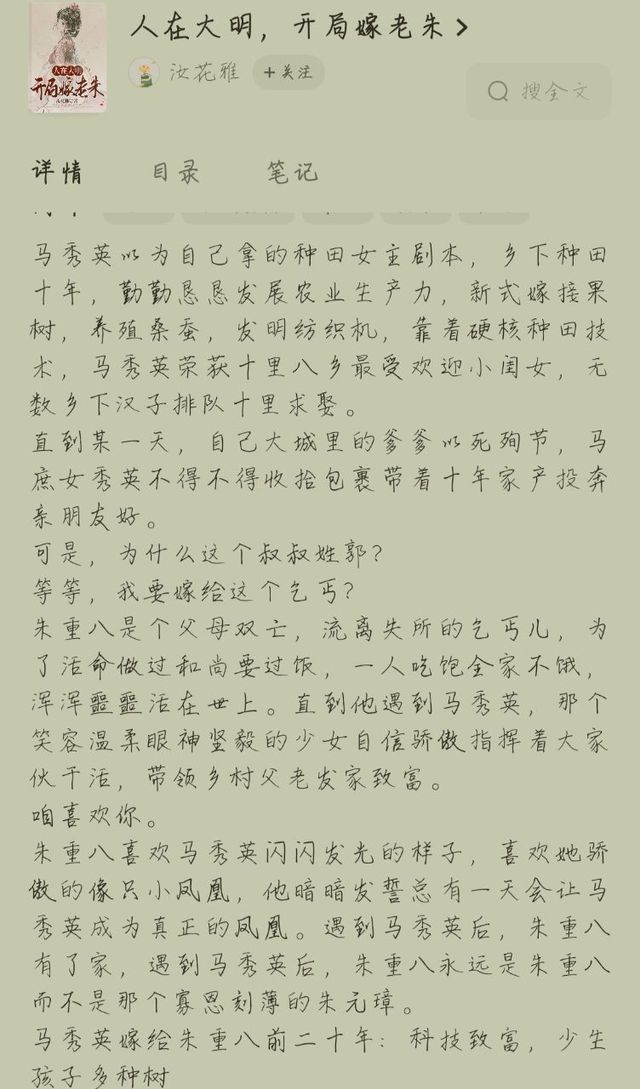 人在大明，开局嫁老朱 >
汝花雅
+关注
搜全文
人在大明
开局嫁老朱
详情
目录
笔记
马秀英以为自己拿的种田女主剧本，乡下种田
十年，勤勤恳恳发展农业生产力，新式嫁接果
树，养殖桑蚕，发明纺织机，靠着硬核种田技
术，马秀英荣获十里八乡最受欢迎小闺女，无
数乡下汉子排队十里求娶。
直到某一天，自己大城里的爹爹以死殉节，马
庶女秀英不得不得收拾包裹带着十年家产投奔
亲朋友好。
可是，为什么这个叔叔姓郭？
等等，我要嫁给这个乞丐？
朱重八是个父母双亡，流离失所的乞丐儿，为
了活命做过和尚要过饭，一人吃饱全家不饿，
浑浑噩噩活在世上。直到他遇到马秀英，那个
笑容温柔眼神坚毅的少女自信骄傲指挥着大家
伙干活，带领乡村父老发家致富。
咱喜欢你。
朱重八喜欢马秀英闪闪发光的样子，喜欢她骄
傲的像只小凤凰，他暗暗发誓总有一天会让马
秀英成为真正的凤凰。遇到马秀英后，朱重八
有了家，遇到马秀英后，朱重八永远是朱重八
而不是那个寡恩刻薄的朱元璋。
马秀英嫁给朱重八前二十年：科技致富，少生
孩子多种树